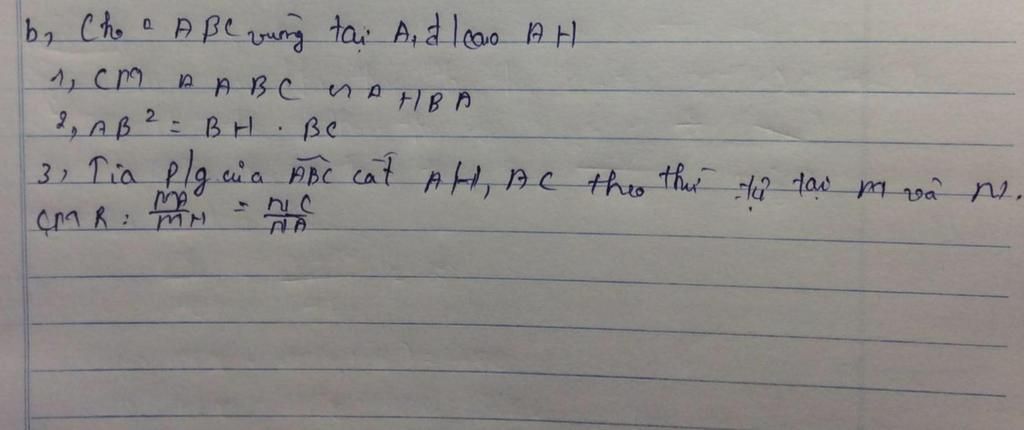 b, Cho △ ABC vuông tại A, đ/cao AH
1, CM △ ABC ∽ △ HBA
2, AB² = BH . BC
3, Tia p/g của ABC cắt AH, AC theo thứ tự tại M và N.
CMR : MA/MH = NC/NA